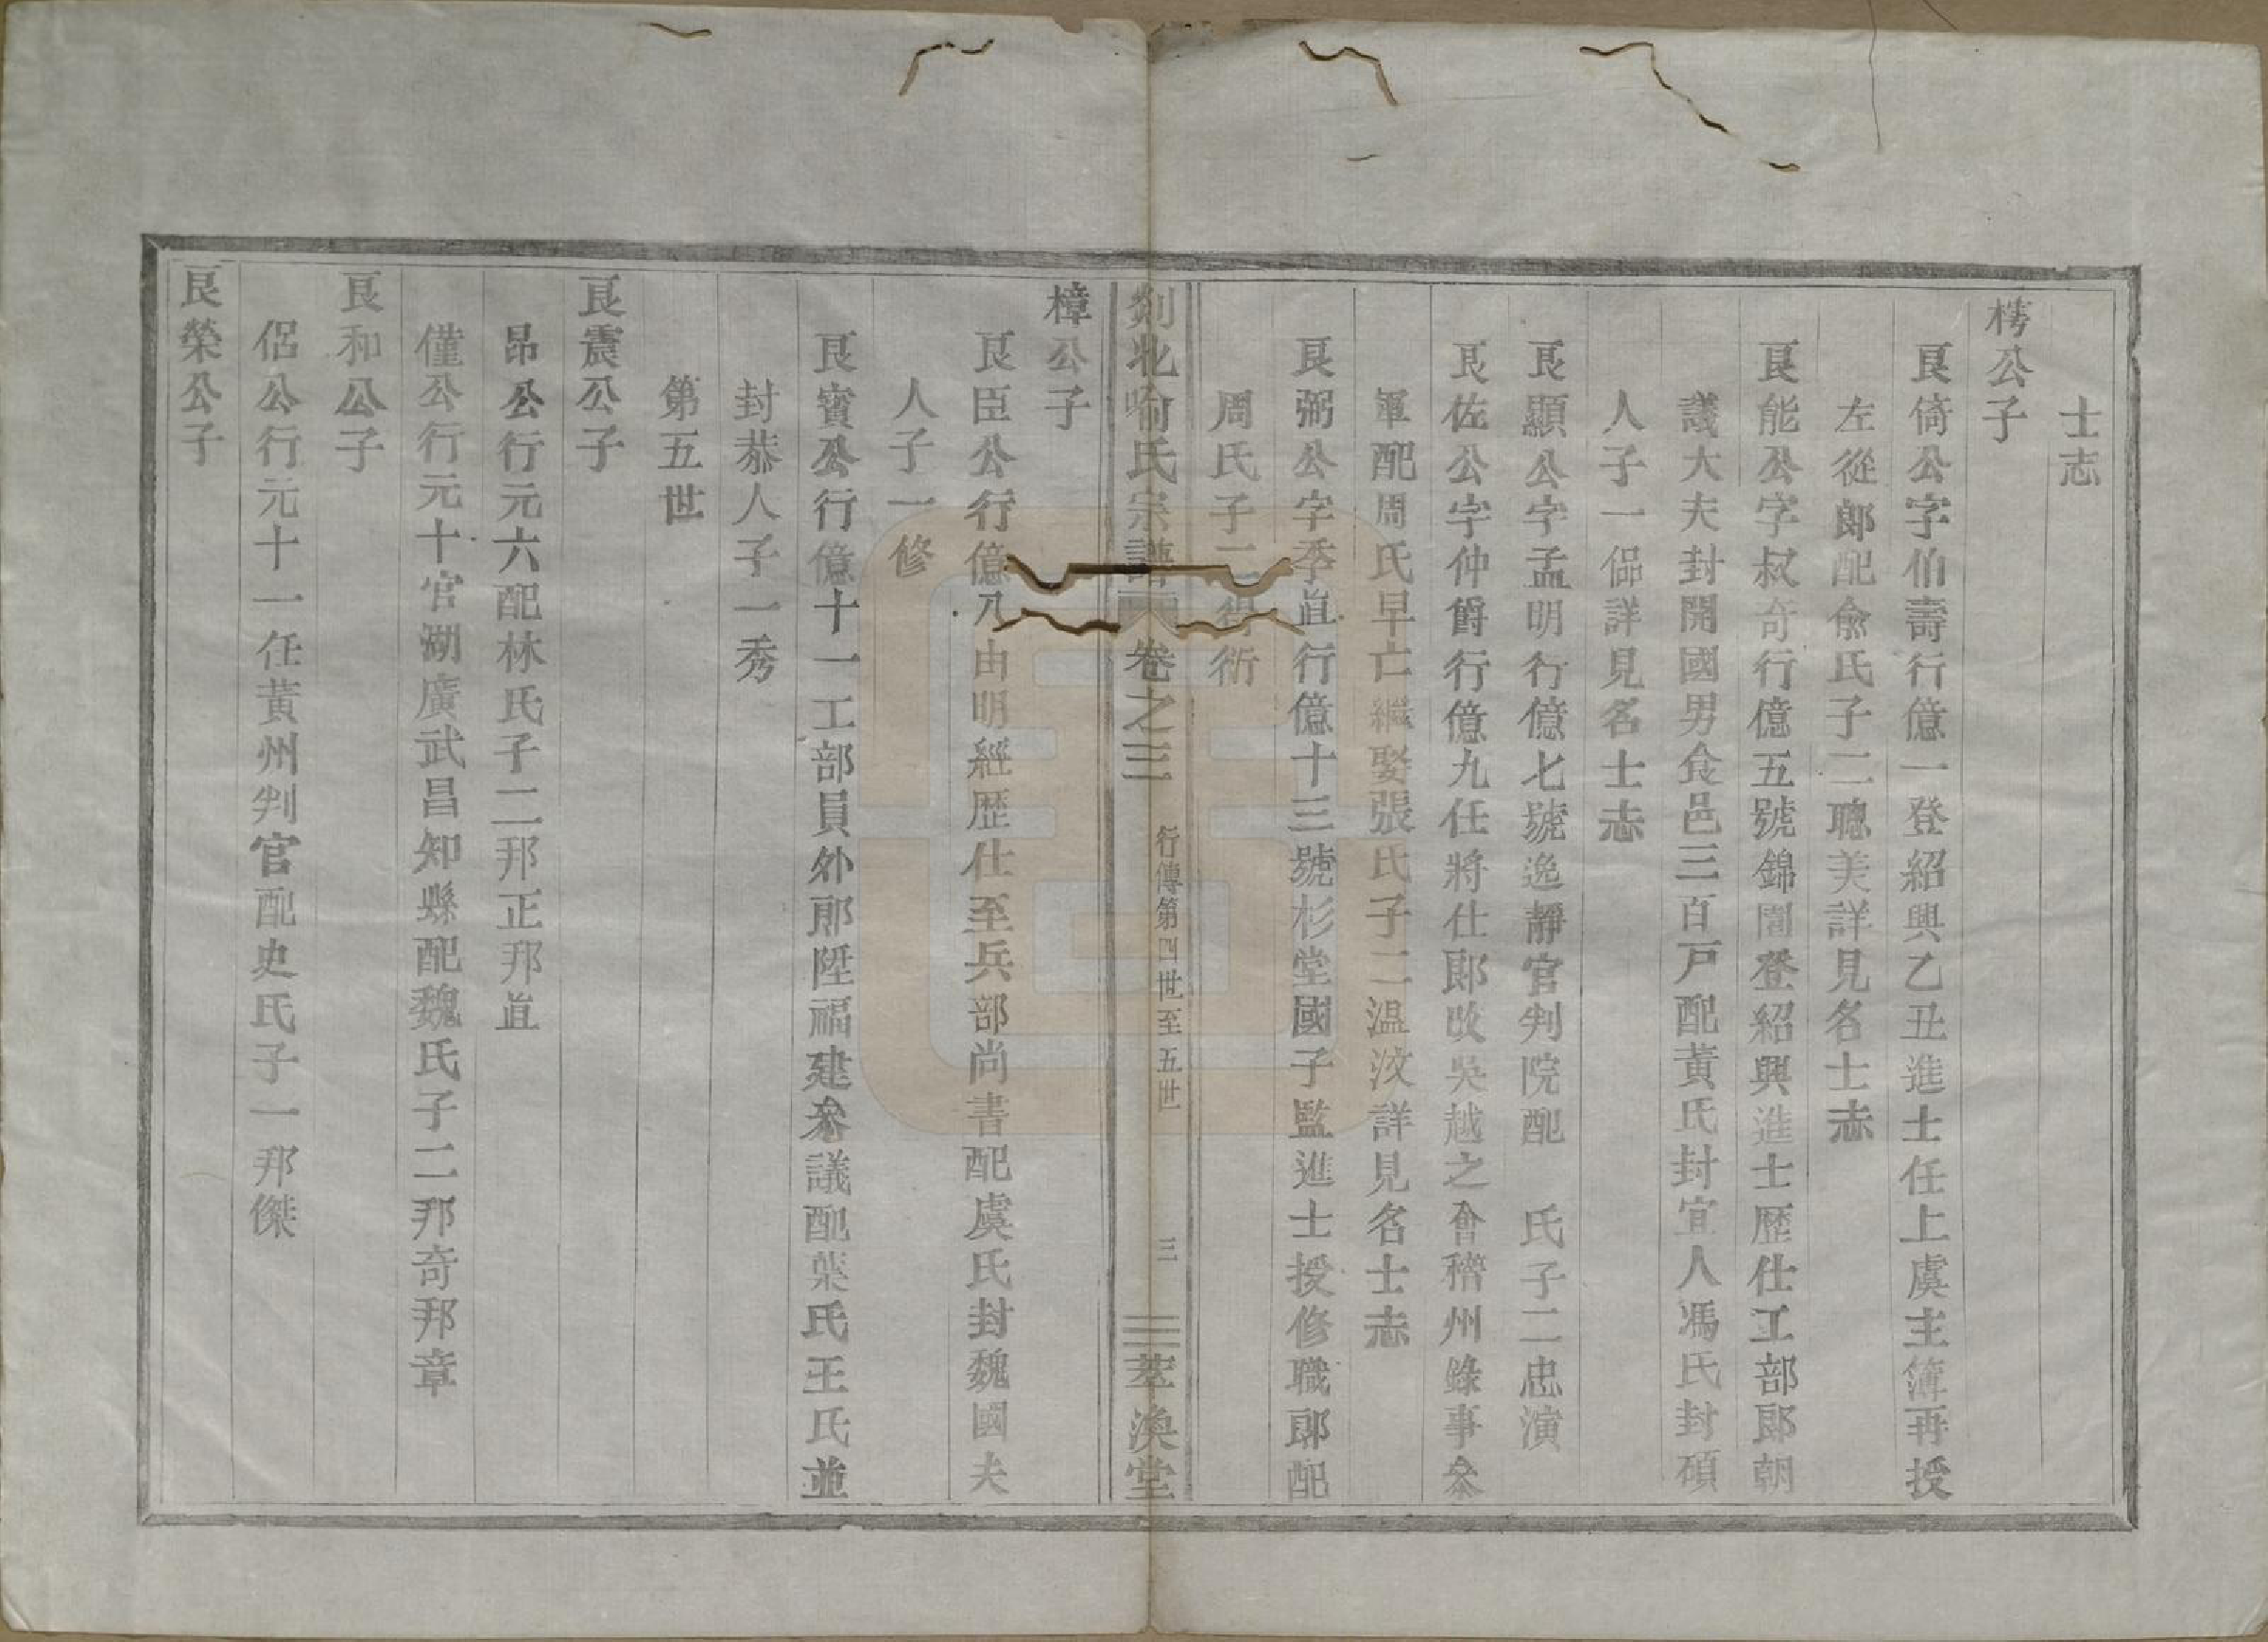 士志
樗公子
良倚公字伯壽行億一登紹興乙丑進士任上虞主簿再授
左從郎配兪氏子二聰美詳見名士志
良能公字叔奇行億五號錦園登紹興進士歷仕工部郎朝
議大夫封開國男食邑三百戸配黃氏封宜人馮氏封碩
人子一偘詳見名士志
良顯公字孟明行億七號逸靜官判院配 氏子二忠演
良佐公字仲爵行億九任將仕郎改吳越之會稽州錄事叅
軍配周氏早亡繼娶張氏子二温汶詳見名士志
良弼公字季直行億十三號杉堂國子監進士授修職郎配
周氏子二 衎
剡北喻氏宗譜 卷之三 行傳第四世至五世 三 萃渙堂
樟公子
良臣公行億八由明經歷仕至兵部尚書配虞氏封魏國夫
人子一修
良賓公行億十一工部員外郎陞福建叅議配葉氏王氏並
封恭人子一秀
第五世
良震公子
昂公行元六配林氏子二邦正邦直
僅公行元十官湖廣武昌知縣配魏氏子二邦奇邦章
良和公子
侶公行元十一任黃州判官配史氏子一邦傑
良榮公子